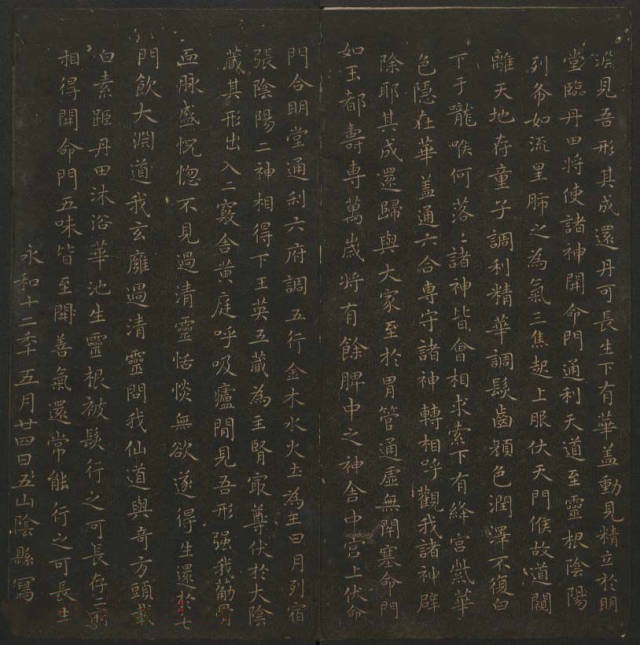 淵見吾形其成還丹可長生下有華蓋動見精立於明
堂臨丹田將使諸神開命門通利天道至靈根陰陽
列布如流星肺之為氣三焦起上服伏天門候故道闚
離天地存童子調利精華調髮齒顏色潤澤不復白
下于嚨喉何落〻諸神皆會相求索下有絳宮紫華
色隱在華蓋通六合專守諸神轉相呼觀我諸神辟
除耶其成還歸與大家至於胃管通虛無閉塞命門
如玉都壽專萬歲將有餘脾中之神舍中宮上伏命
門合明堂通利六府調五行金木水火土為王日月列宿
張陰陽二神相得下玉英五藏為主腎最尊伏於大陰
藏其形出入二竅舍黃庭呼吸廬間見吾形强我筋骨
血脉盛怳惚不見過清靈恬惔無欲遂得生還於七
門飲大淵道我玄廱過清靈問我仙道與奇方頭載
白素距丹田沐浴華池生靈根被髮行之可長存二府
相得開命門五味皆至開善氣還常能行之可長生
永和十二年五月廿四日五山陰縣寫